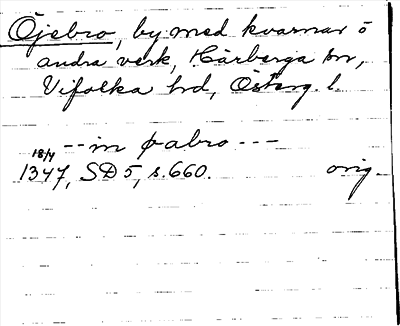 Öjebro, by med kvarnar o
andra verk, Härberga sn,
Vifolka hd, Österg. l.
--- in øabro ---
18/4
1347, SD 5, s. 660. orig.